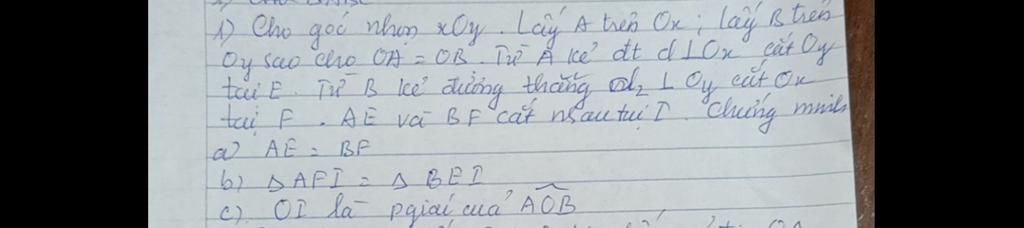 1) Cho góc nhọn xOy. Lấy A trên Ox; lấy B trên
Oy sao cho OA = OB. Từ A kẻ đt d ⊥ Ox cắt Oy
tại E. Từ B kẻ đường thẳng d₂ ⊥ Oy cắt Ox
tại F. AE và BF cắt nhau tại I. Chứng minh
a) AE = BF
b) △AFI = △BEI
c). OI là pgiác của AOB